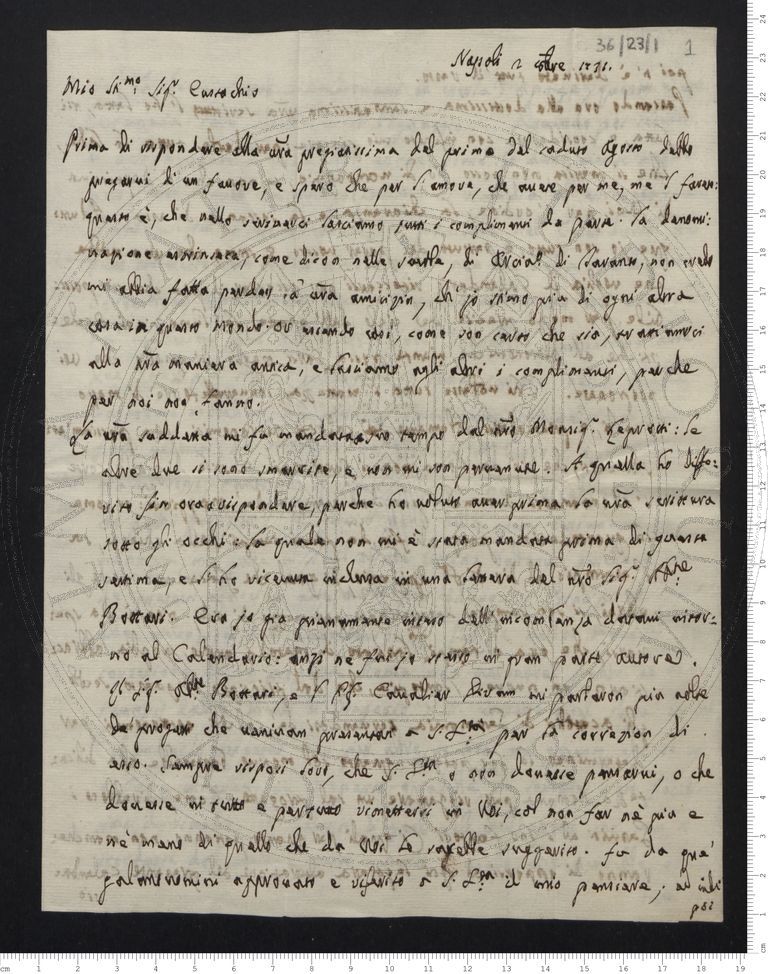 36/23/1 1
Napoli 2 8bre 1731.
Mio Stimo Sigr. Eustachio
Prima di rispondere alla vra pregiatissima del primo del caduto Agosto debbo
pregarvi di un favore, e spero che per l'amore, che avete per me, me 'l farete:
questo è, che nello scriverci lasciamo tutti i complimenti da parte. La denomi:
nazione, come dicon nelle scuole, di di Taranto, non credo
mi abbia fatta perder la vra amicizia, ch'io stimo più di ogni altra
cosa in questo mondo. Or essendo così, come son certo che sia, trattiamoci
alla nra maniera antica, e lasciamo agli altri i complimenti, perche
per noi non fanno.
La vra suddetta mi fu mandata a suo tempo dal nro Monsigr. Leprotti: le
altre due si sono smarrite, e non mi son pervenute. A quella ho diffe:
rito fin ora a rispondere, perche ho voluto aver prima la vra scrittura
sotto gli occhi: la quale non mi è stata mandata prima di questa
settima, e l'ho ricevuta inclusa in una lettera del nro Sigr. Abe
Bottari. Era io già pienamente inteso dell'incombenza datavi intor:
no al Calendario: anzi ne fui io stesso in gran parte autore.
Il Sigr. Abe Bottari, e 'l Sigr. Cavalier mi parlaron più volte
de' progetti che venivan presentati a S. Stà per la correzion di
esso. Sempre risposi loro, che S. Stà o non dovesse pensarvi, o che
dovesse in tutto e per tutto rimettersi in Voi, col non far nè più e
nè meno di quello che da Voi le sarebbe suggerito. Fu da que'
galantuomini approvato e riferito a S. Stà il mio pensiere; ed indi
poi